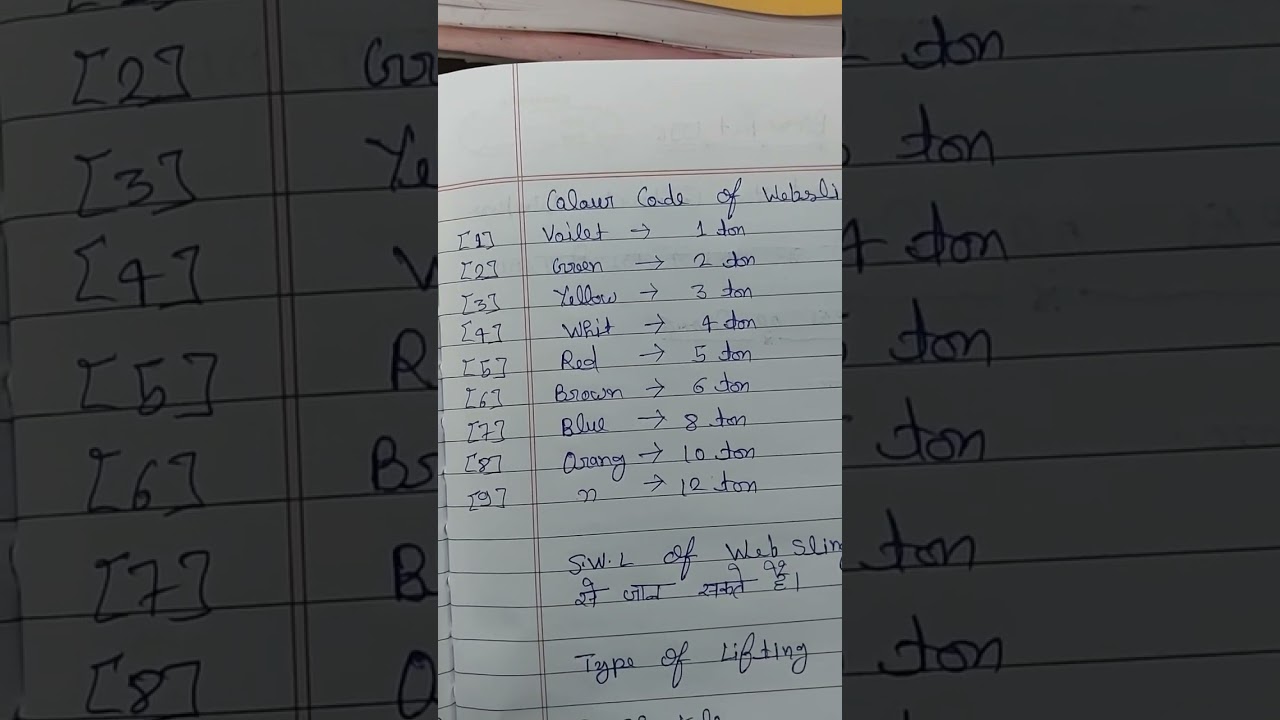 Colour Code of Websli
[1] Vailet → 1 ton
[2] Green → 2 ton
[3] Yellow → 3 ton
[4] Whit → 4 ton
[5] Red → 5 ton
[6] Brown → 6 ton
[7] Blue → 8 ton
[8] Orang → 10 ton
[9] " → 12 ton
S.W.L of Web Slin
से जान सकते है।
Type of Lifting